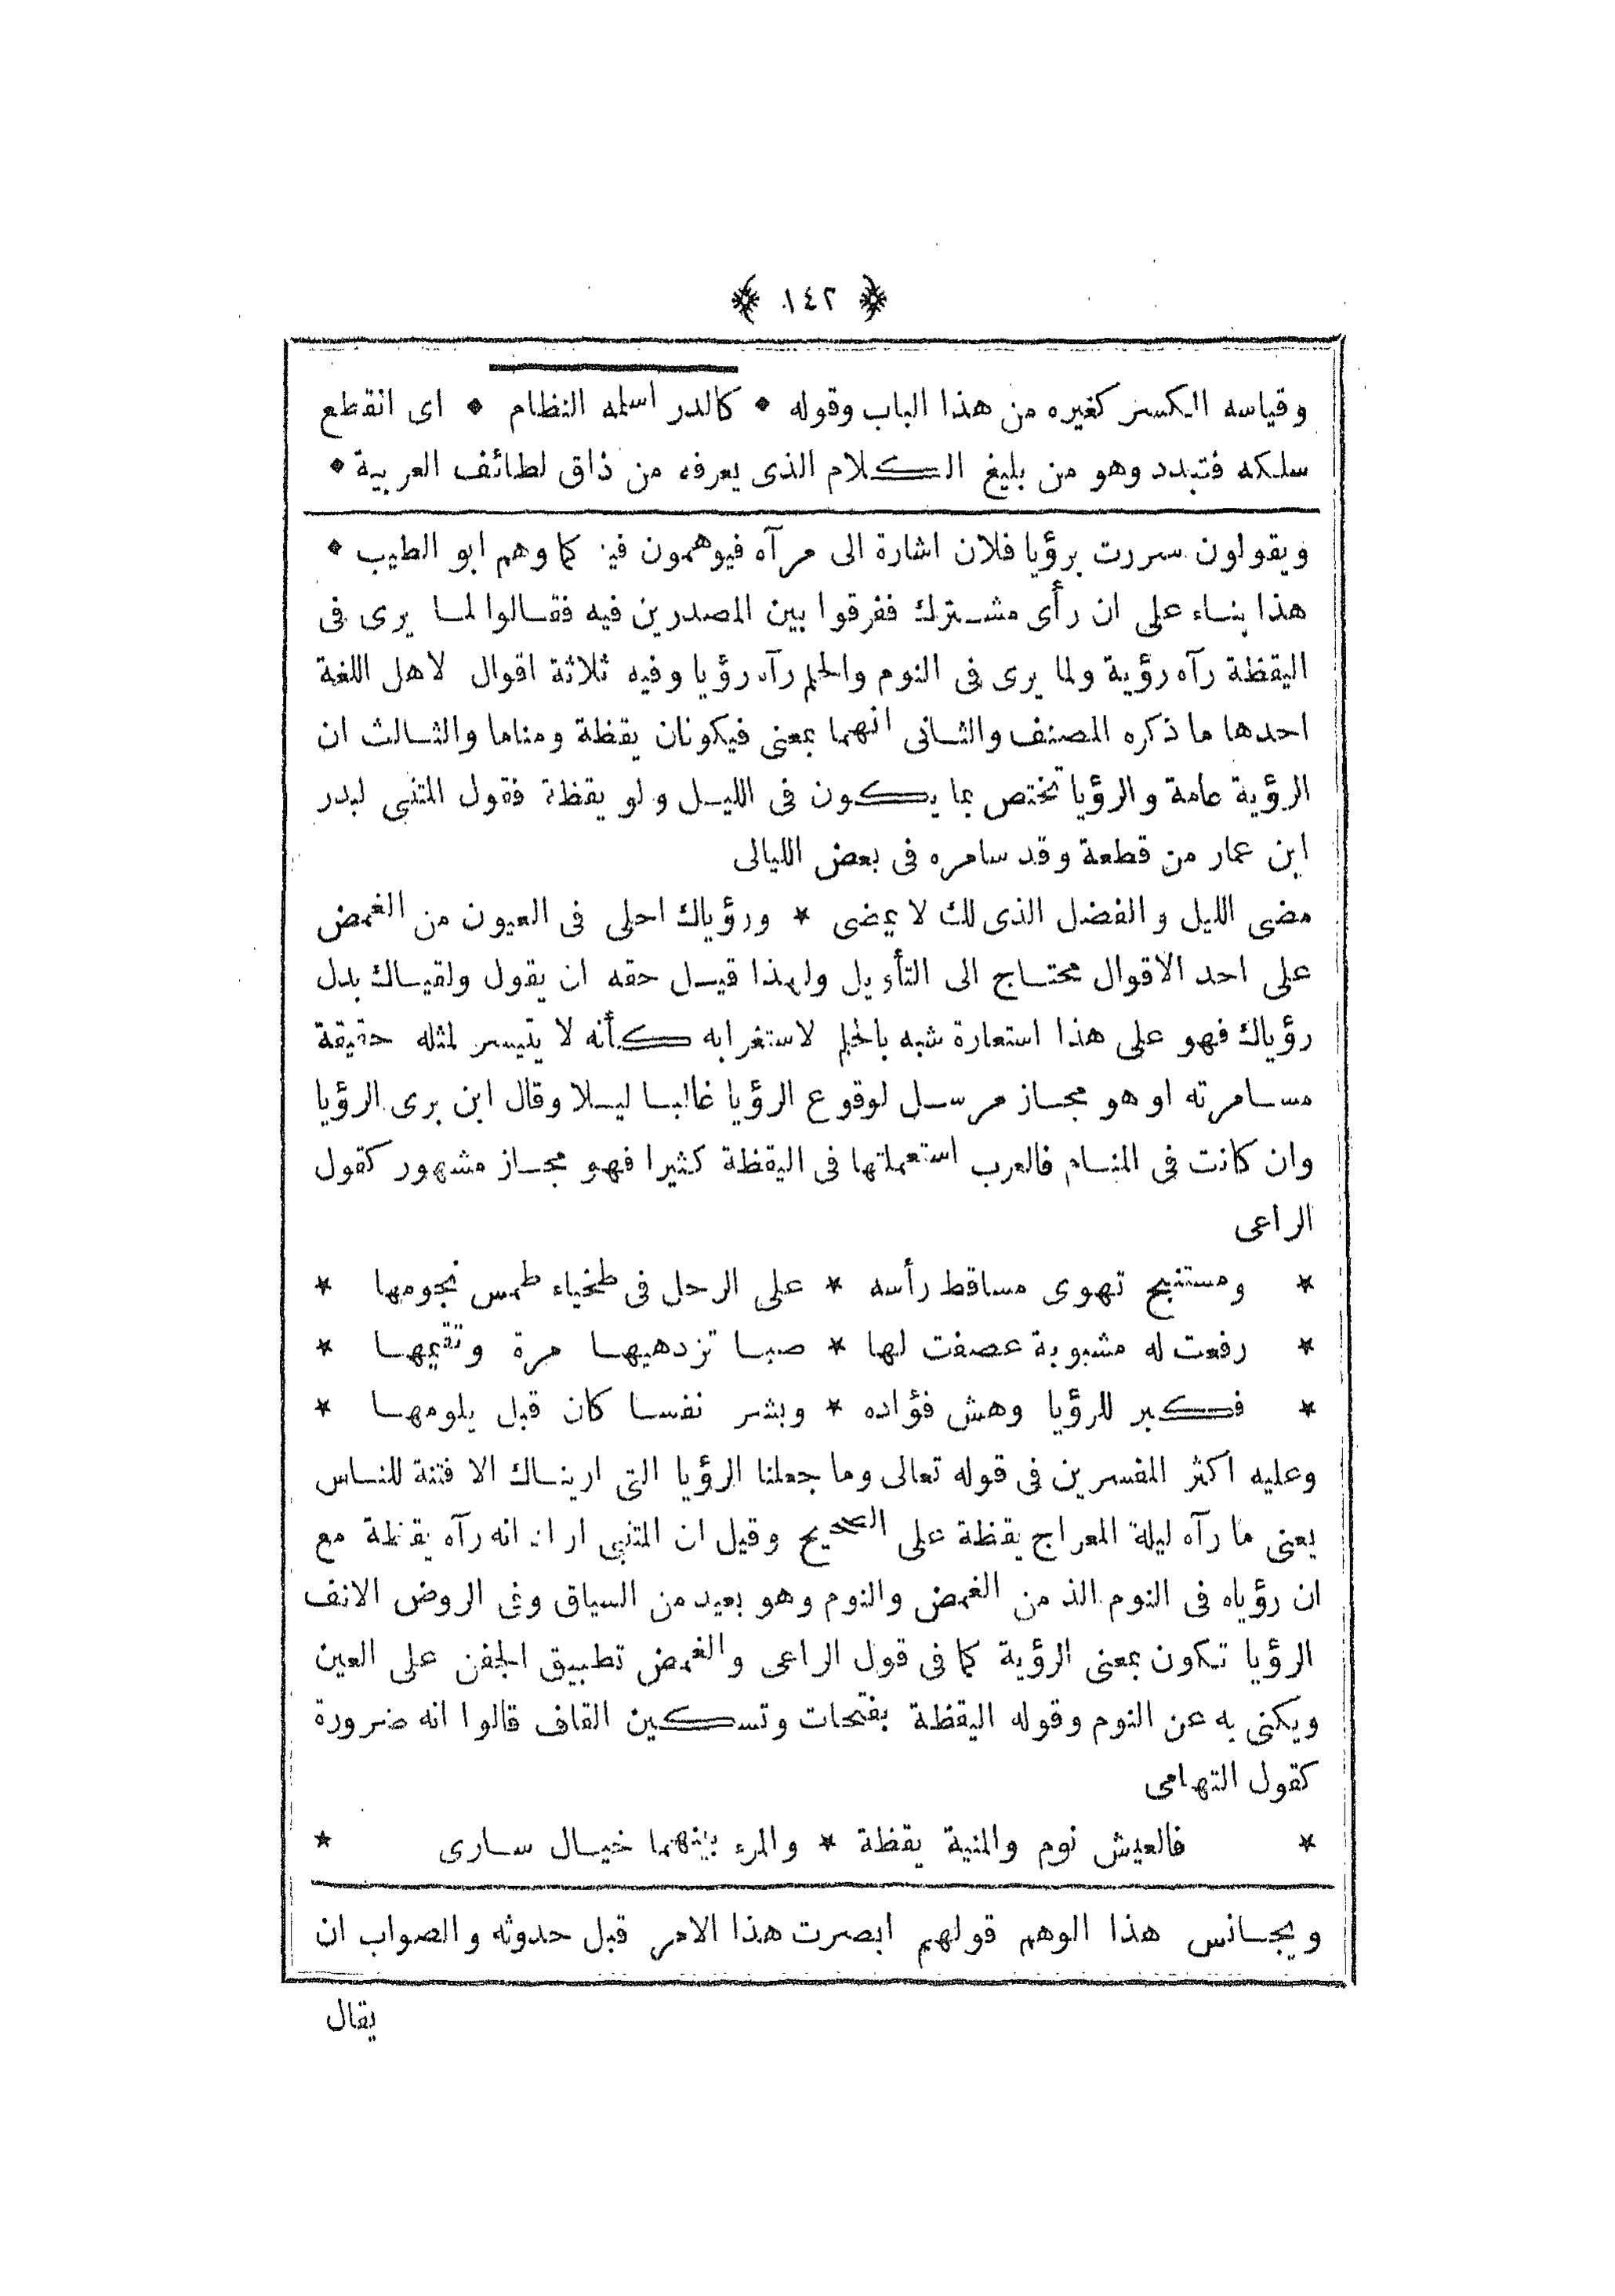 ﴿ ١٤٢ ﴾
وقياسه الكسر كغيره من هذا الباب وقوله • كالدر اسلمه النظام • اى انقطع
سلكه فتبدد وهو من بليغ الكلام الذى يعرفه من ذاق لطائف العربية •
ويقولون سررت برؤيا فلان اشارة الى مرآه فيوهمون فيه كما وهم ابو الطيب •
هذا بناء على ان رأى مشترك ففرقوا بين المصدرين فيه فقالوا لما يرى فى
اليقظة رآه رؤية ولما يرى فى النوم والحلم رآه رؤيا وفيه ثلاثة اقوال لاهل اللغة
احدها ما ذكره المصنف والثانى انهما بمعنى فيكونان يقظة ومناما والثالث ان
الرؤية عامة والرؤيا تختص بما يكون فى الليل ولو يقظة فقول المتنبى لبدر
ابن عمار من قطعة وقد سامره فى بعض الليالى
مضى الليل والفضل الذى لك لا يمضى * ورؤياك احلى فى العيون من الغمض
على احد الاقوال محتاج الى التأويل ولهذا قيل حقه ان يقول ولقياك بدل
رؤياك فهو على هذا استعارة شبه بالحلم لاستغرابه كأنه لا يتيسر لمثله حقيقة
مسامرته او هو مجاز مرسل لوقوع الرؤيا غالبا ليلا وقال ابن برى الرؤيا
وان كانت فى المنام فالعرب استعملتها فى اليقظة كثيرا فهو مجاز مشهور كقول
الراعى
* ومستنبح تهوى مساقط رأسه * على الرحل فى طخياء طمس نجومها *
* رفعت له مشبوبة عصفت لها * صبا تزدهيها مرة وتقيمها *
* فكبر للرؤيا وهش فؤاده * وبشر نفسا كان قبل يلومها *
وعليه اكثر المفسرين فى قوله تعالى وما جعلنا الرؤيا التى اريناك الا فتنة للناس
يعنى ما رآه ليلة المعراج يقظة على الصحيح وقيل ان المتنبى اراد انه رآه يقظة مع
ان رؤياه فى النوم الذ من الغمض والنوم وهو بعيد من السياق وفى الروض الانف
الرؤيا تكون بمعنى الرؤية كما فى قول الراعى والغمض تطبيق الجفن على العين
ويكنى به عن النوم وقوله اليقظة بفتحات وتسكين القاف قالوا انه ضرورة
كقول التهامى
* فالعيش نوم والمنية يقظة * والمرء بينهما خيال سارى *
ويجانس هذا الوهم قولهم ابصرت هذا الامر قبل حدوثه والصواب ان
يقال